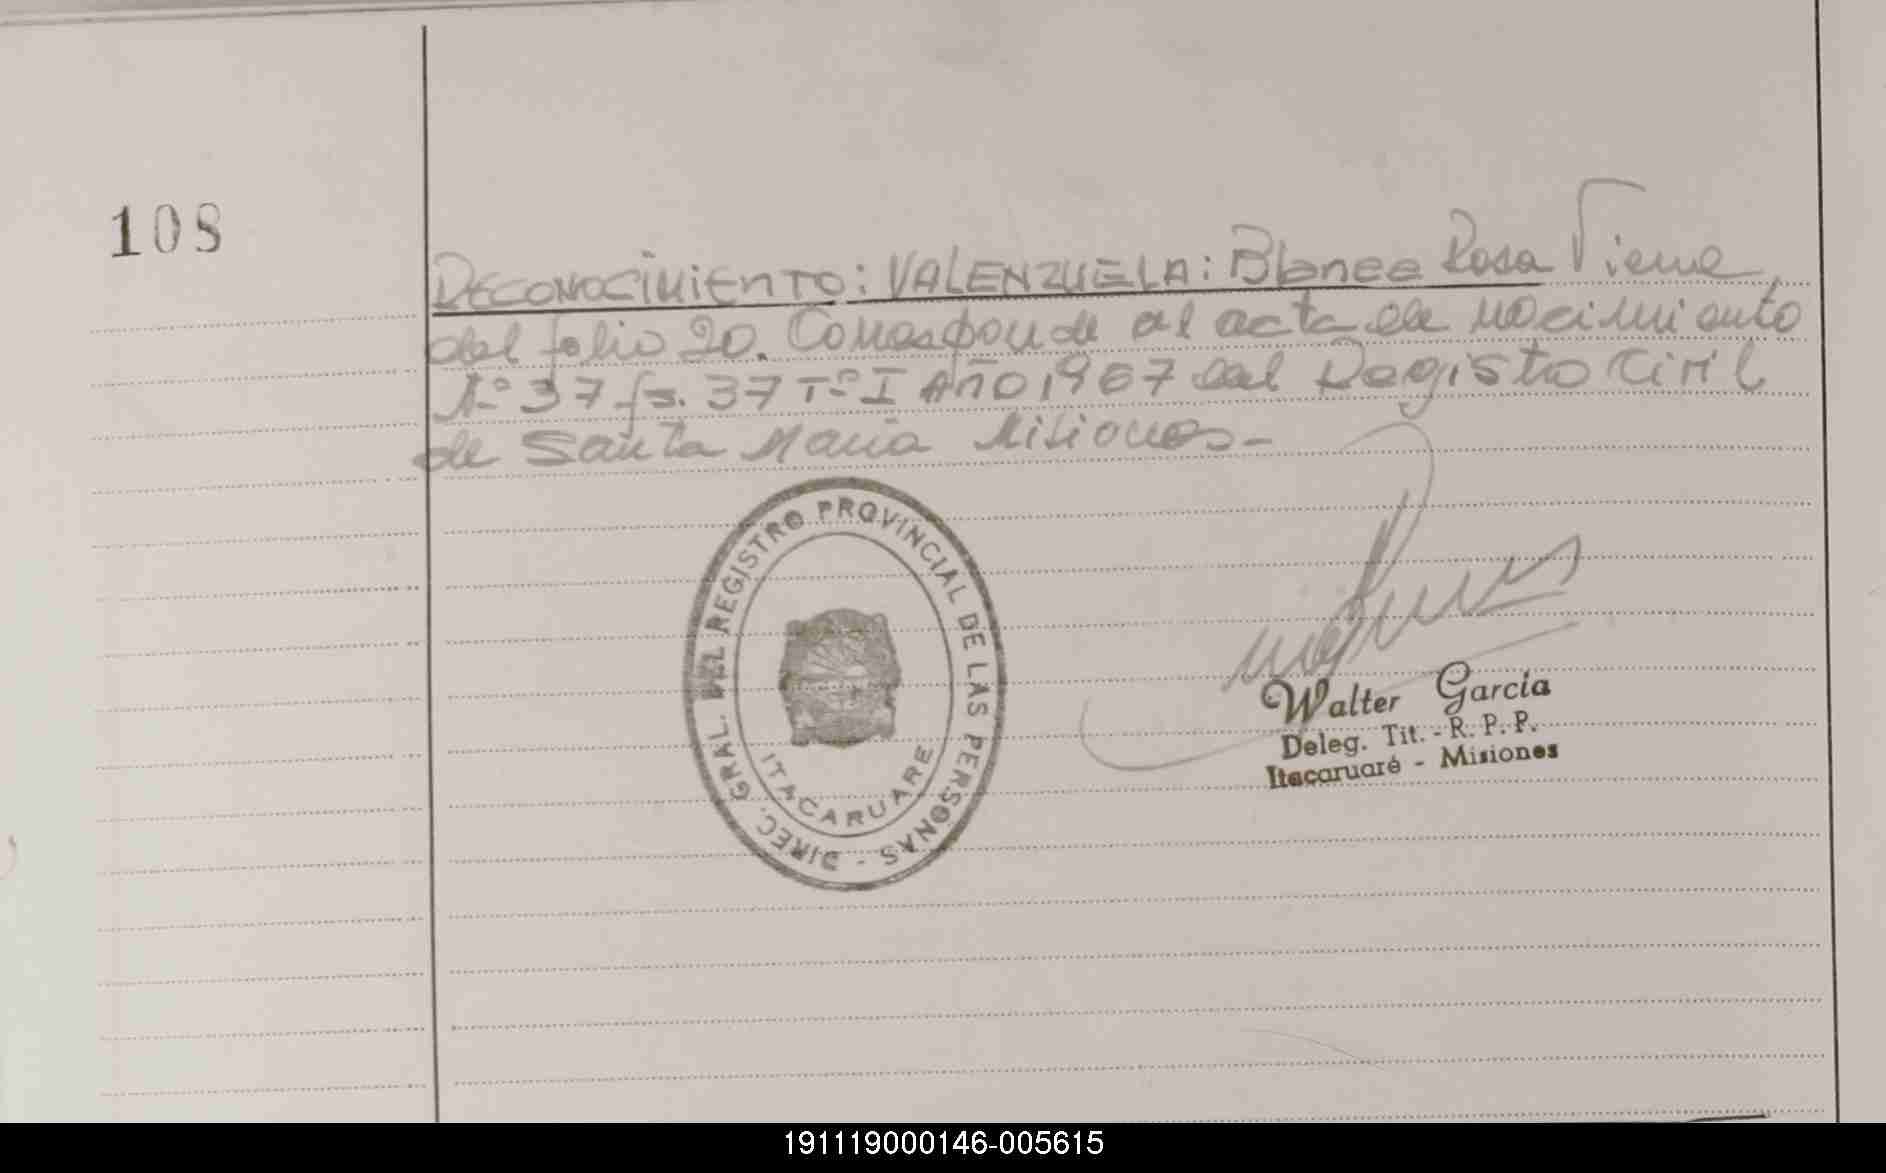 108
RECONOCIMIENTO: VALENZUELA: Blanca Rosa Viene
del folio 20. Corresponde al acta de nacimiento
Nº 37 fs. 37 Tº I Año 1967 del Registro Civil
de Santa María Misiones-
DIREC. GRAL. DEL REGISTRO PROVINCIAL DE LAS PERSONAS -
ITACARUARE
Walter García
Deleg. Tit. - R. P. P.
Itacaruaré - Misiones
191119000146-005615